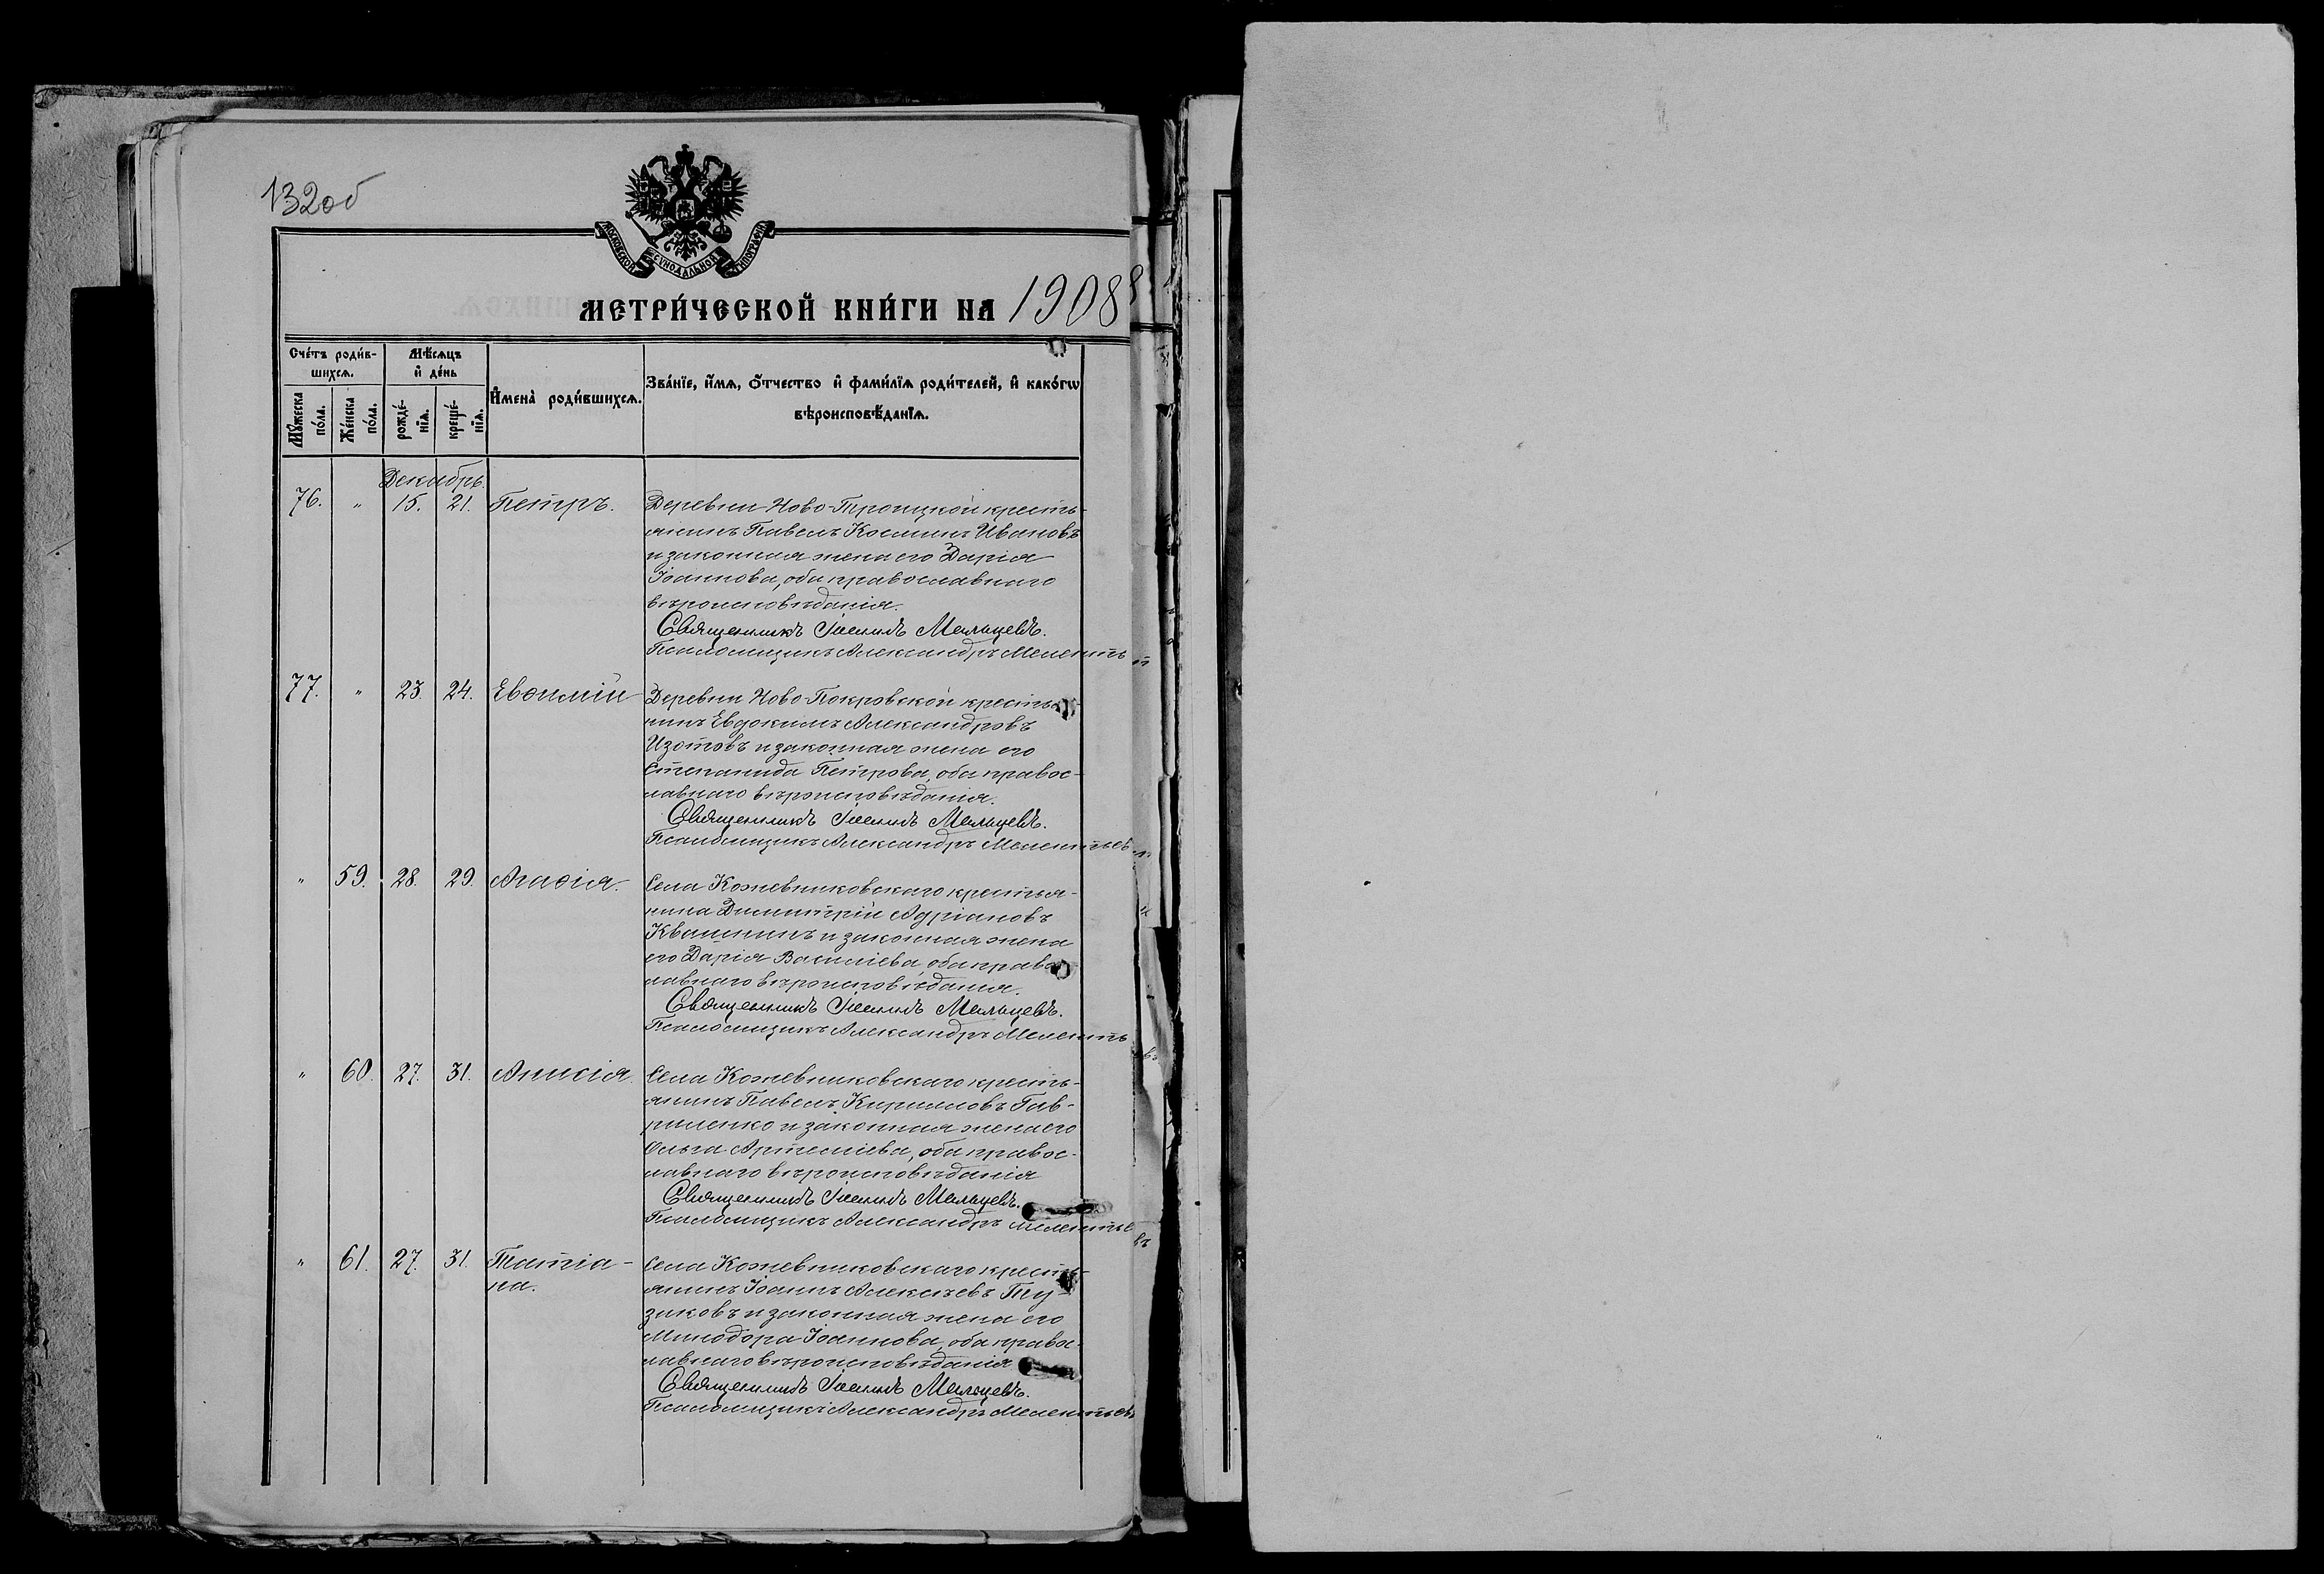 132об
МОСКОВСКОЙ СѴНОДАЛЬНОЙ ТИПОГРАФІИ
МЕТРИ́ЧЕСКОЙ КНИ́ГИ НА 1908
Сче́тъ роди́в-
шихсѧ.
Мѣ́сѧцъ
и҆ де́нь
И҆мена̀ роди́вшихсѧ.
Зва́нїе, и҆́мѧ, ѻ҆́тчество и҆ фами́лїѧ роди́телей, и҆ како́гѡ
вѣроисповѣ́данїѧ.
Мꙋ́жеска
по́ла.
Же́нска
по́ла.
рожде́-
нїѧ.
креще́-
нїѧ.
Декабрь.
76. " 15. 21. Петръ. Деревни Ново-Троицкой кресть-
янинъ Павелъ Косминъ Ивановъ
и законная жена его Дарія
Іоаннова, оба православнаго
вѣроисповѣданія.
Священникъ Іоаннъ Мальцевъ.
Псаломщикъ Александръ Мелентье
77. " 23. 24. Евѳимій Деревни Ново-Покровской крестья-
нинъ Евдокимъ Александровъ
Изотовъ и законная жена его
Степанида Петрова, оба правос-
лавнаго вѣроисповѣданія.
Священникъ Іоаннъ Мальцевъ.
Псаломщикъ Александръ Мелентьевъ
" 59. 28. 29. Агаѳія. Села Кожевниковскаго крестья-
нина Димитрій Адріановъ
Квашнинъ и законная жена
его Дарія Василіева, оба право
лавнаго вѣроисповѣданія.
Священникъ Іоаннъ Мальцевъ.
Псаломщикъ Александръ Меленть
" 60. 27. 31. Анисія. Села Кожевниковскаго кресть-
янинъ Павелъ Кирилловъ Гав-
риленко и законная жена его
Ольга Артеміева, оба правос-
лавнаго вѣроисповѣданія
Священникъ Іоаннъ Мальцевъ.
Псаломщикъ Александръ Мелентьевъ
" 61. 27. 31. Татіа- Села Кожевниковскаго кресть-
на. янинъ Іоаннъ Алексѣевъ Ту-
зиковъ и законная жена его
Минодора Іоаннова, оба правос-
лавнаго вѣроисповѣданія
Священникъ Іоаннъ Мальцевъ.
Псаломщикъ Александръ Мелентьевъ